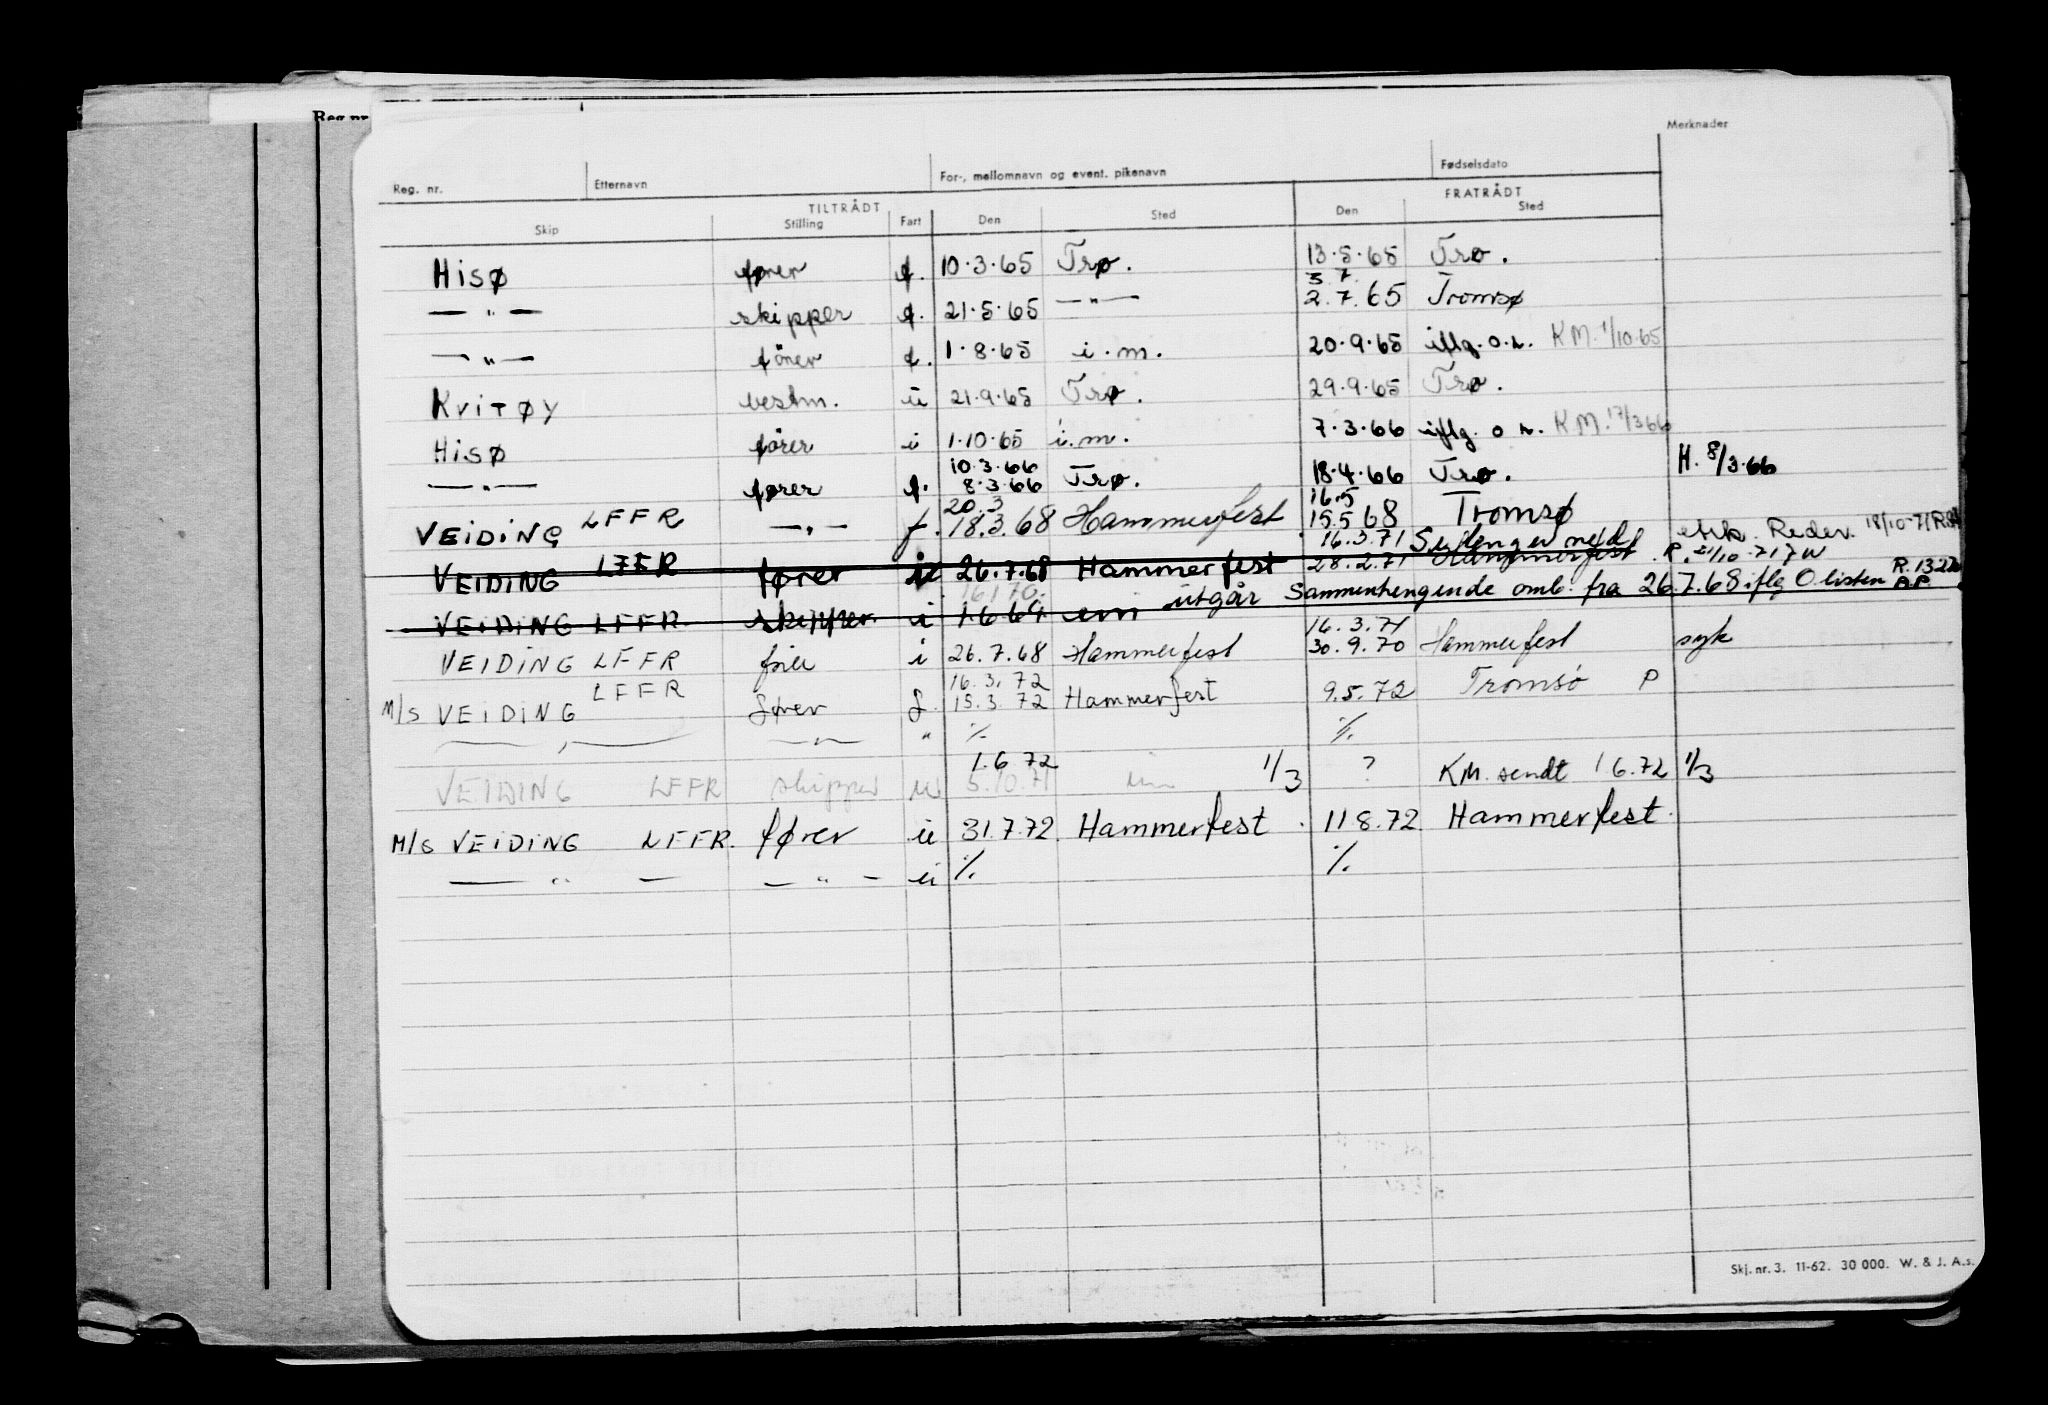 Reg. nr.
Merknader
Reg. nr. Etternavn For-, mellomnavn og event. pikenavn Fødselsdato
TILTRÅDT FRATRÅDT
Skip Stilling Fart Den Sted Den Sted
Hisø fører f. 10.3.65 Trø. 13.5.65 Trø.
3.7.
— " — skipper f. 21.5.65 — " — 2.7.65 Tromsø
— " — fører f. 1.8.65 i.m. 20.9.65 iflg. o.r. KM. 1/10.65
Kvitøy bestm. ii 21.9.65 Trø. 29.9.65 Trø.
Hisø fører i 1.10.65 i.m. 7.3.66 iflg. o r. KM. 17/366
10.3.66
— " — fører f. 8.3.66 Trø. 18.4.66 Trø. H. 8/3.66
20.3 16.5
VEIDING LFFR — " — f. 18.3.68 Hammerfest 15.5 68 Tromsø
16.3.71 Se lenger ned Reder. 18/10-71
VEIDING LFFR fører 26.7.68 Hammerfest 28.2.71 Hammerfest R. 21/10 71
utgår Sammenhengende omb. fra 26.7.68 iflg O listen
VEIDING LFFR skipper i 1.6 64
16.3.71
VEIDING LFFR fører i 26.7.68 Hammerfest 30.9.70 Hammerfest syk
16.3.72
M/S VEIDING LFFR fører f. 15.3.72 Hammerfest 9.5.72 Tromsø P
— " — — " — " % %
1.6 72
VEIDING LFFR skipper 5.10.71 1/3 ? KM. sendt 1 6.72 1/3
M/S VEIDING LFFR. fører ii 31.7.72. Hammerfest. 11 8.72. Hammerfest.
— " — — " — ii % %
Skj. nr. 3. 11-62. 30 000. W. & J. A.s.